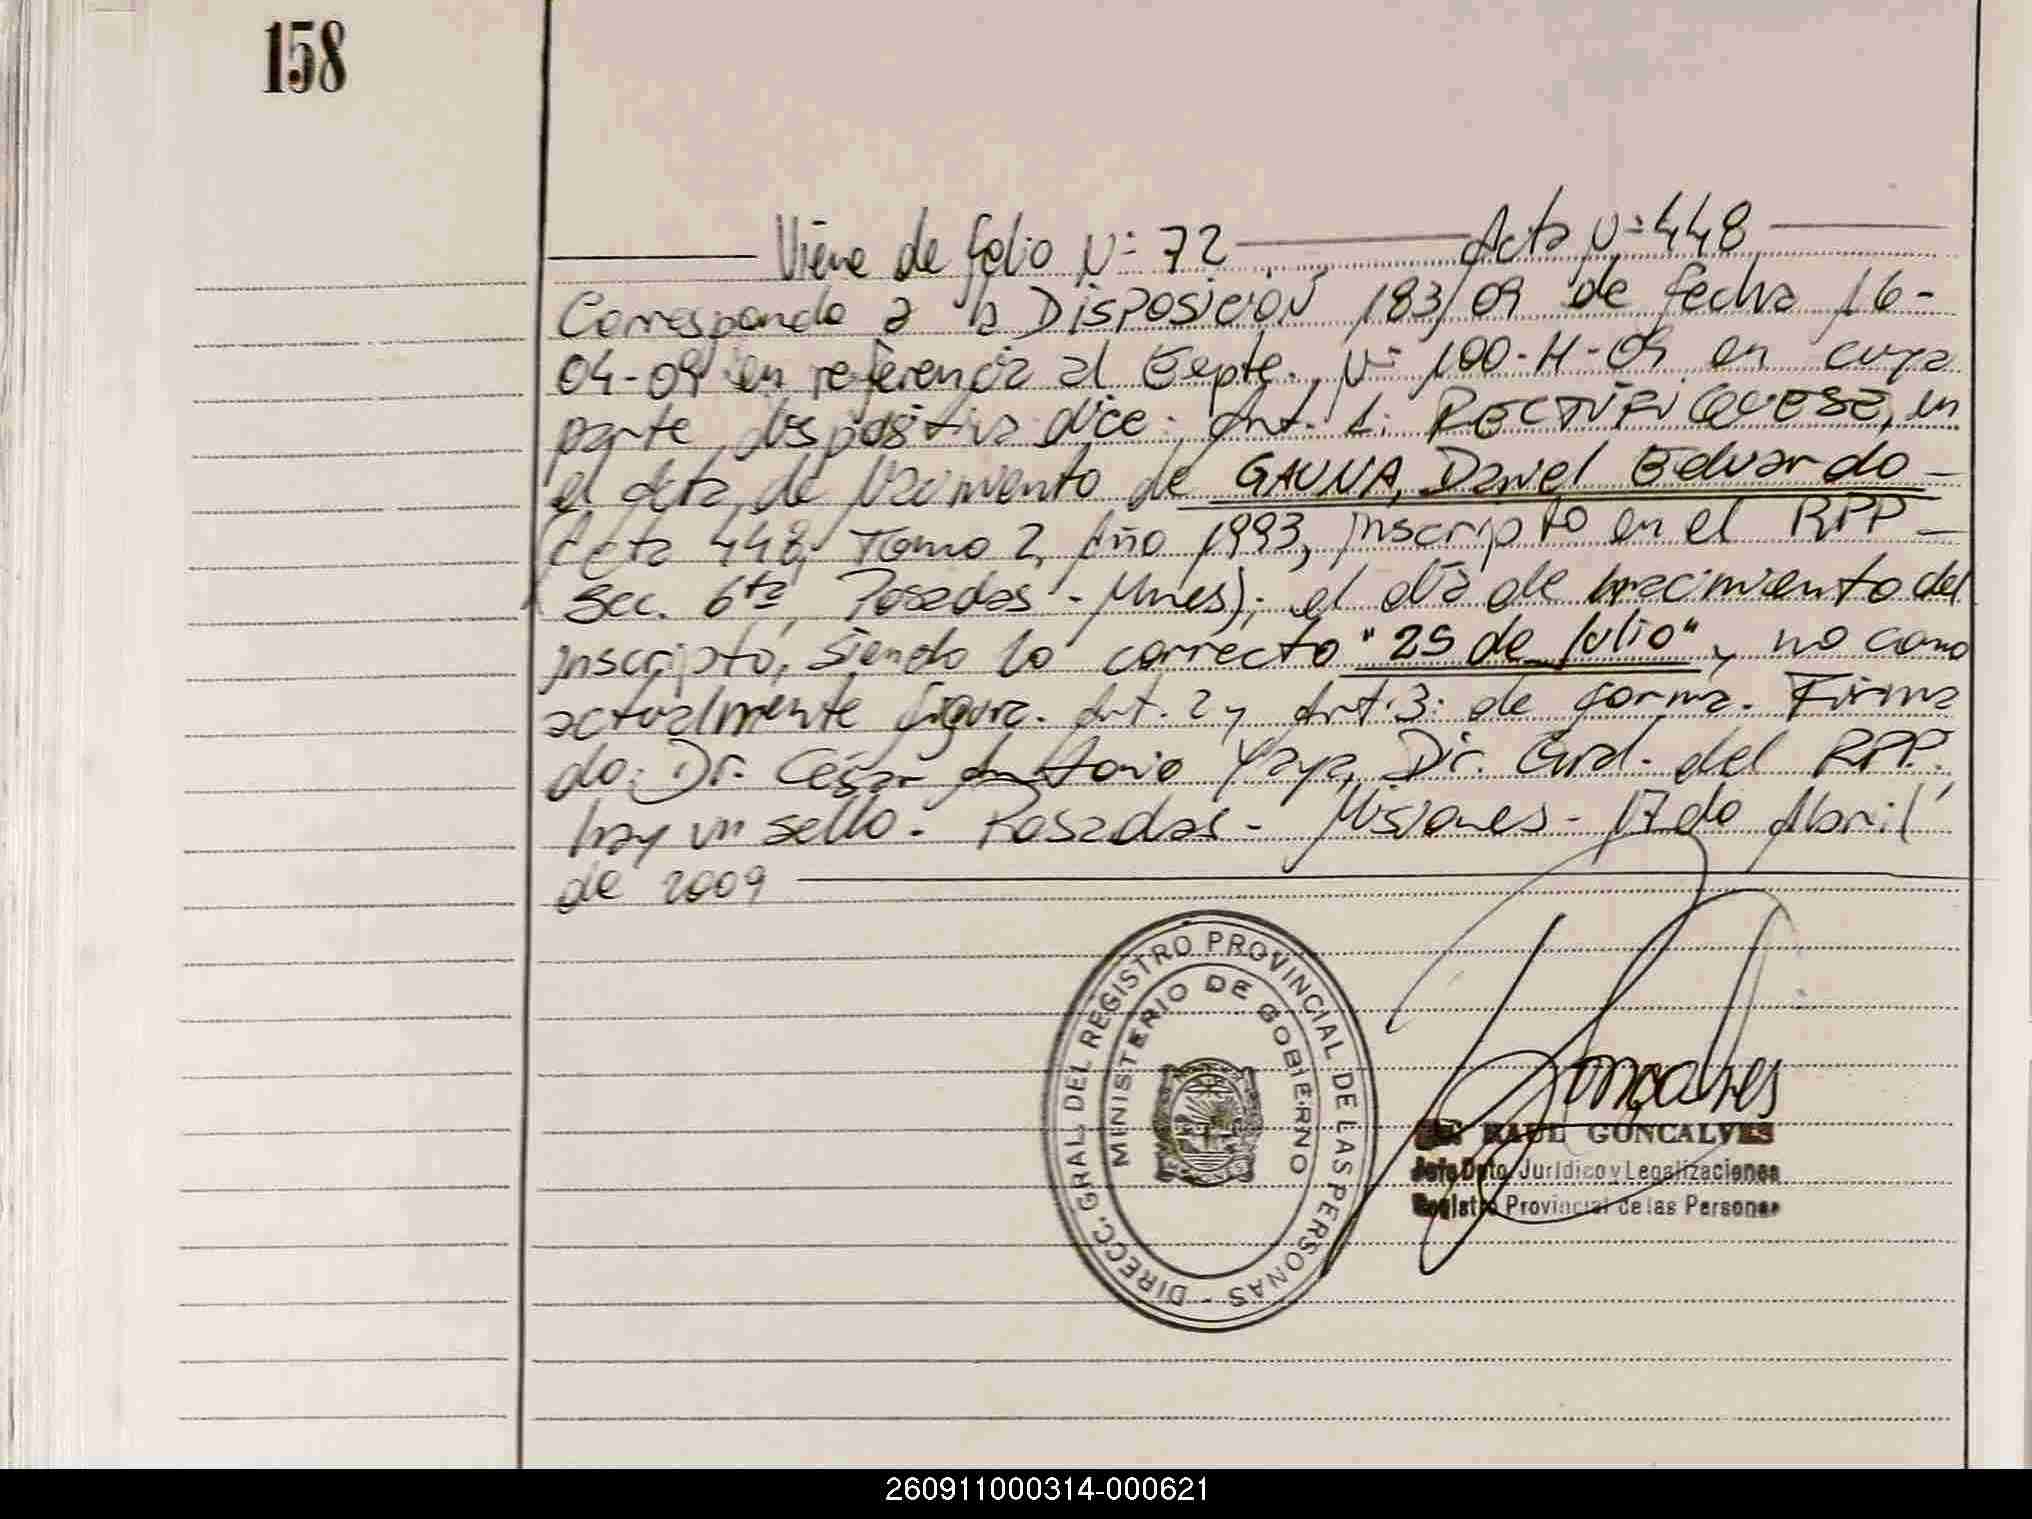 158
Viene de folio Nº 72 Acta Nº 448
Corresponde a la DISPOSICIÓN 183/09 de fecha 16-
04-09 en referencia al Expte. Nº 100-H-09 en cuya
parte dispositiva dice: Art. 1: RECTIFIQUESE, en
el acta de Nacimiento de GAUNA, Daniel Eduardo -
(Acta 448, Tomo 2, Año 1993, inscripto en el RPP -
Sec. 6ta, Posadas - Mnes); el día de nacimiento del
inscripto, siendo lo correcto "25 de Julio" y no como
actualmente figura. Art. 2 y Art. 3: de forma. Firma
do: Dr. César Antonio Yaya, Dir. Gral. del RPP.,
hay un sello. Posadas - Misiones - 17 de Abril
de 2009
DIRECC. GRAL DEL REGISTRO PROVINCIAL DE LAS PERSONAS -
MINISTERIO DE GOBIERNO
Goncalves
RAUL GONCALVES
Jefe Dpto. Jurídico y Legalizaciones
Registro Provincial de las Personas
260911000314-000621